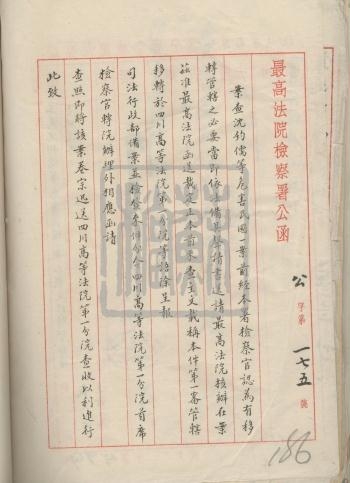 最高法院檢察署公函
公字第一七五號
案查沈鈞儒等危害民國一案前經本署檢察官認為有移
轉管轄之必要當即依法備具聲請書送請最高法院核辦在案
茲准最高法院函送裁定正本前來查主文載稱本件第一審管轄
移轉於四川高等法院第一分院等語除呈報
司法行政部備案並檢發來件令四川高等法院第一分院首席
檢察官轉院辦理外相應函請
查照即將該案卷宗迅送四川高等法院第一分院查收以利進行
此致
186